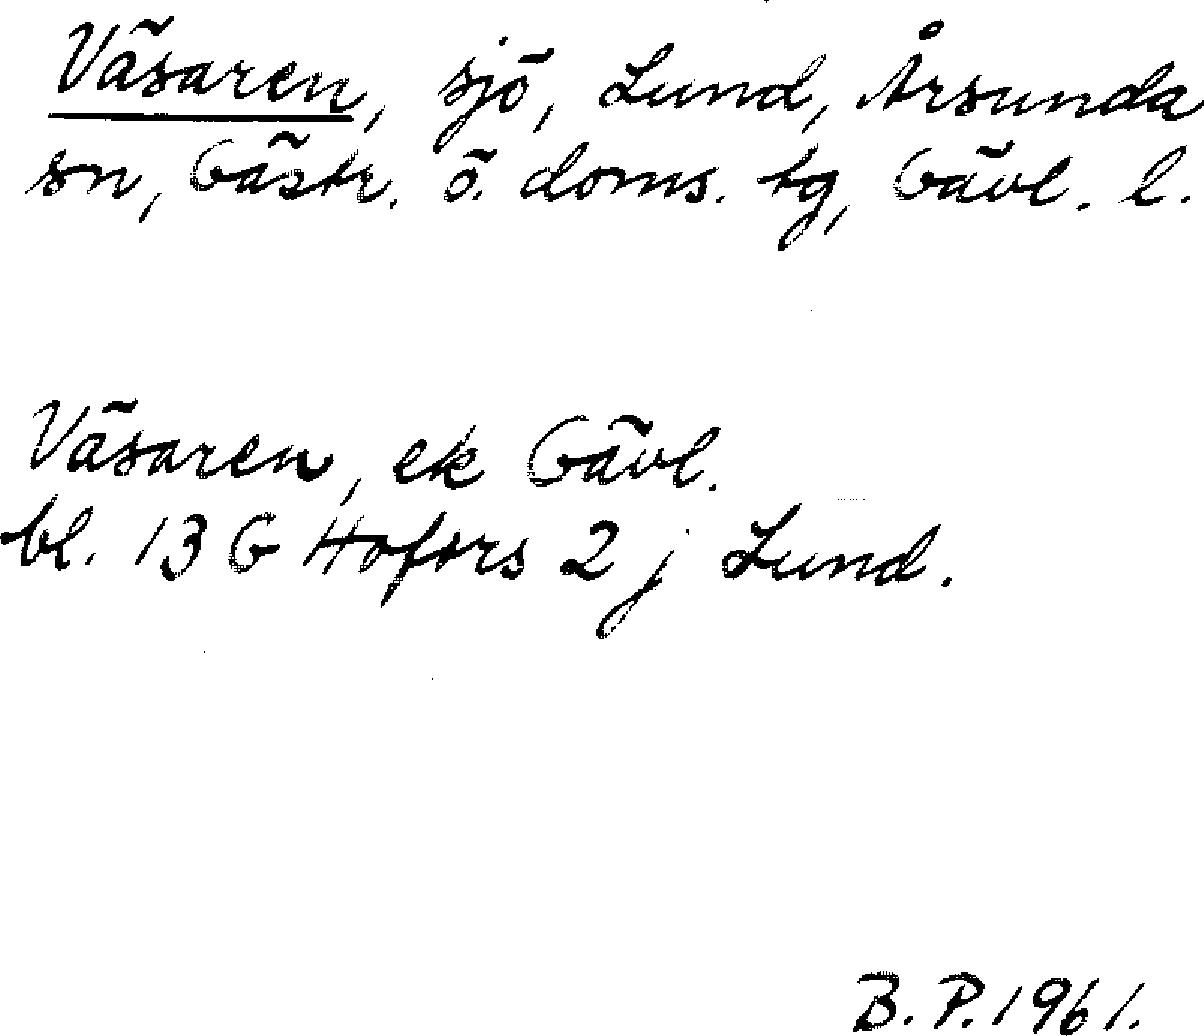 Väsaren, sjö, Lund, Årsunda
sn, Gästr. ö. doms. tg, Gävl. l.
Väsaren, ek Gävl.
bl. 13 G Hofors 2 j Lund.
B. P. 1961.